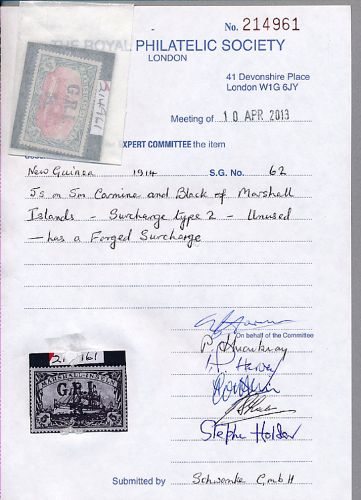 No. 214961
THE ROYAL PHILATELIC SOCIETY
LONDON
41 Devonshire Place
London W1G 6JY
Meeting of 10 APR 2013
EXPERT COMMITTEE the item
New Guinea 1914 S.G. No. 62
5s on 5m Carmine and Black of Marshall
Islands - Surcharge type 2 - Unused
- has a Forged Surcharge
G.R.I.
214961
On behalf of the Committee
G.R.I.
Stephe Holder
Submitted by Schwanke GmbH